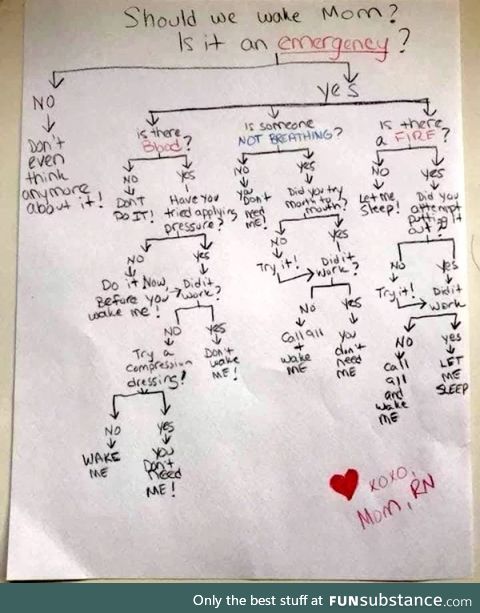 Should we wake Mom?
Is it an emergency?
NO
yes
Don't
even
think
anymore
about it!
is there
Blood?
NO
yes
DON'T
DO IT!
Have you
tried applying
pressure?
NO
yes
Do it Now,
Before you
wake me!
Did it
work?
NO
yes
Try a
compression
dressing!
Don't
wake
ME!
NO
yes
WAKE
ME
you
Don't
Need
ME!
is someone
NOT BREATHING?
NO
yes
you
Don't
need
me!
Did you try
mouth to
mouth?
NO
yes
Try it!
Did it
work?
NO
yes
Call 911
+
wake
ME
you
don't
need
ME
Is there
a FIRE?
NO
yes
Let me
Sleep!
Did you
attempt
putting it
out?
NO
yes
Try it!
Did it
work
NO
yes
Call
911
and
wake
ME
LET
ME
SLEEP
xoxo,
Mom, RN
Only the best stuff at FUNsubstance.com